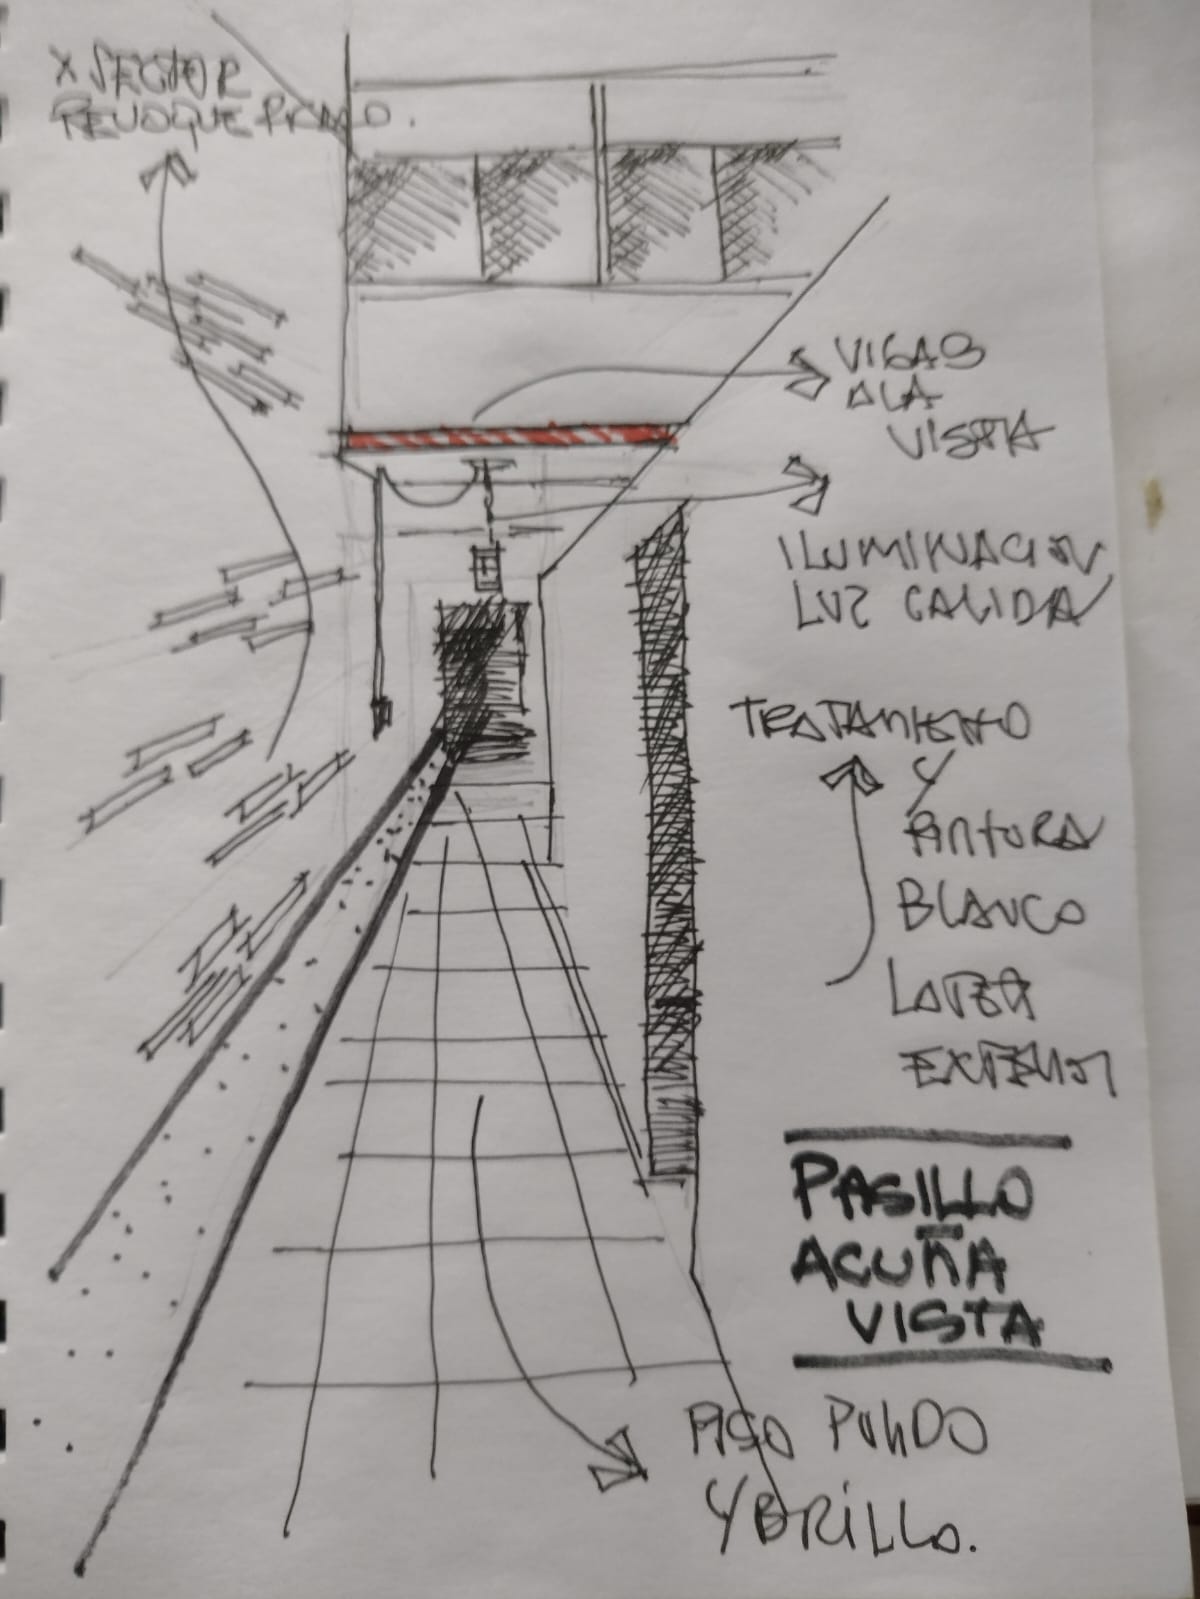 X SECTOR
REVOQUE
VIGAS
A LA
VISTA
ILUMINACION
LUZ CALIDA
TRATAMIENTO
Y
PINTURA
BLANCO
LATEX
EXTERIOR
PASILLO
ACUÑA
VISTA
PISO PULIDO
Y BRILLO.